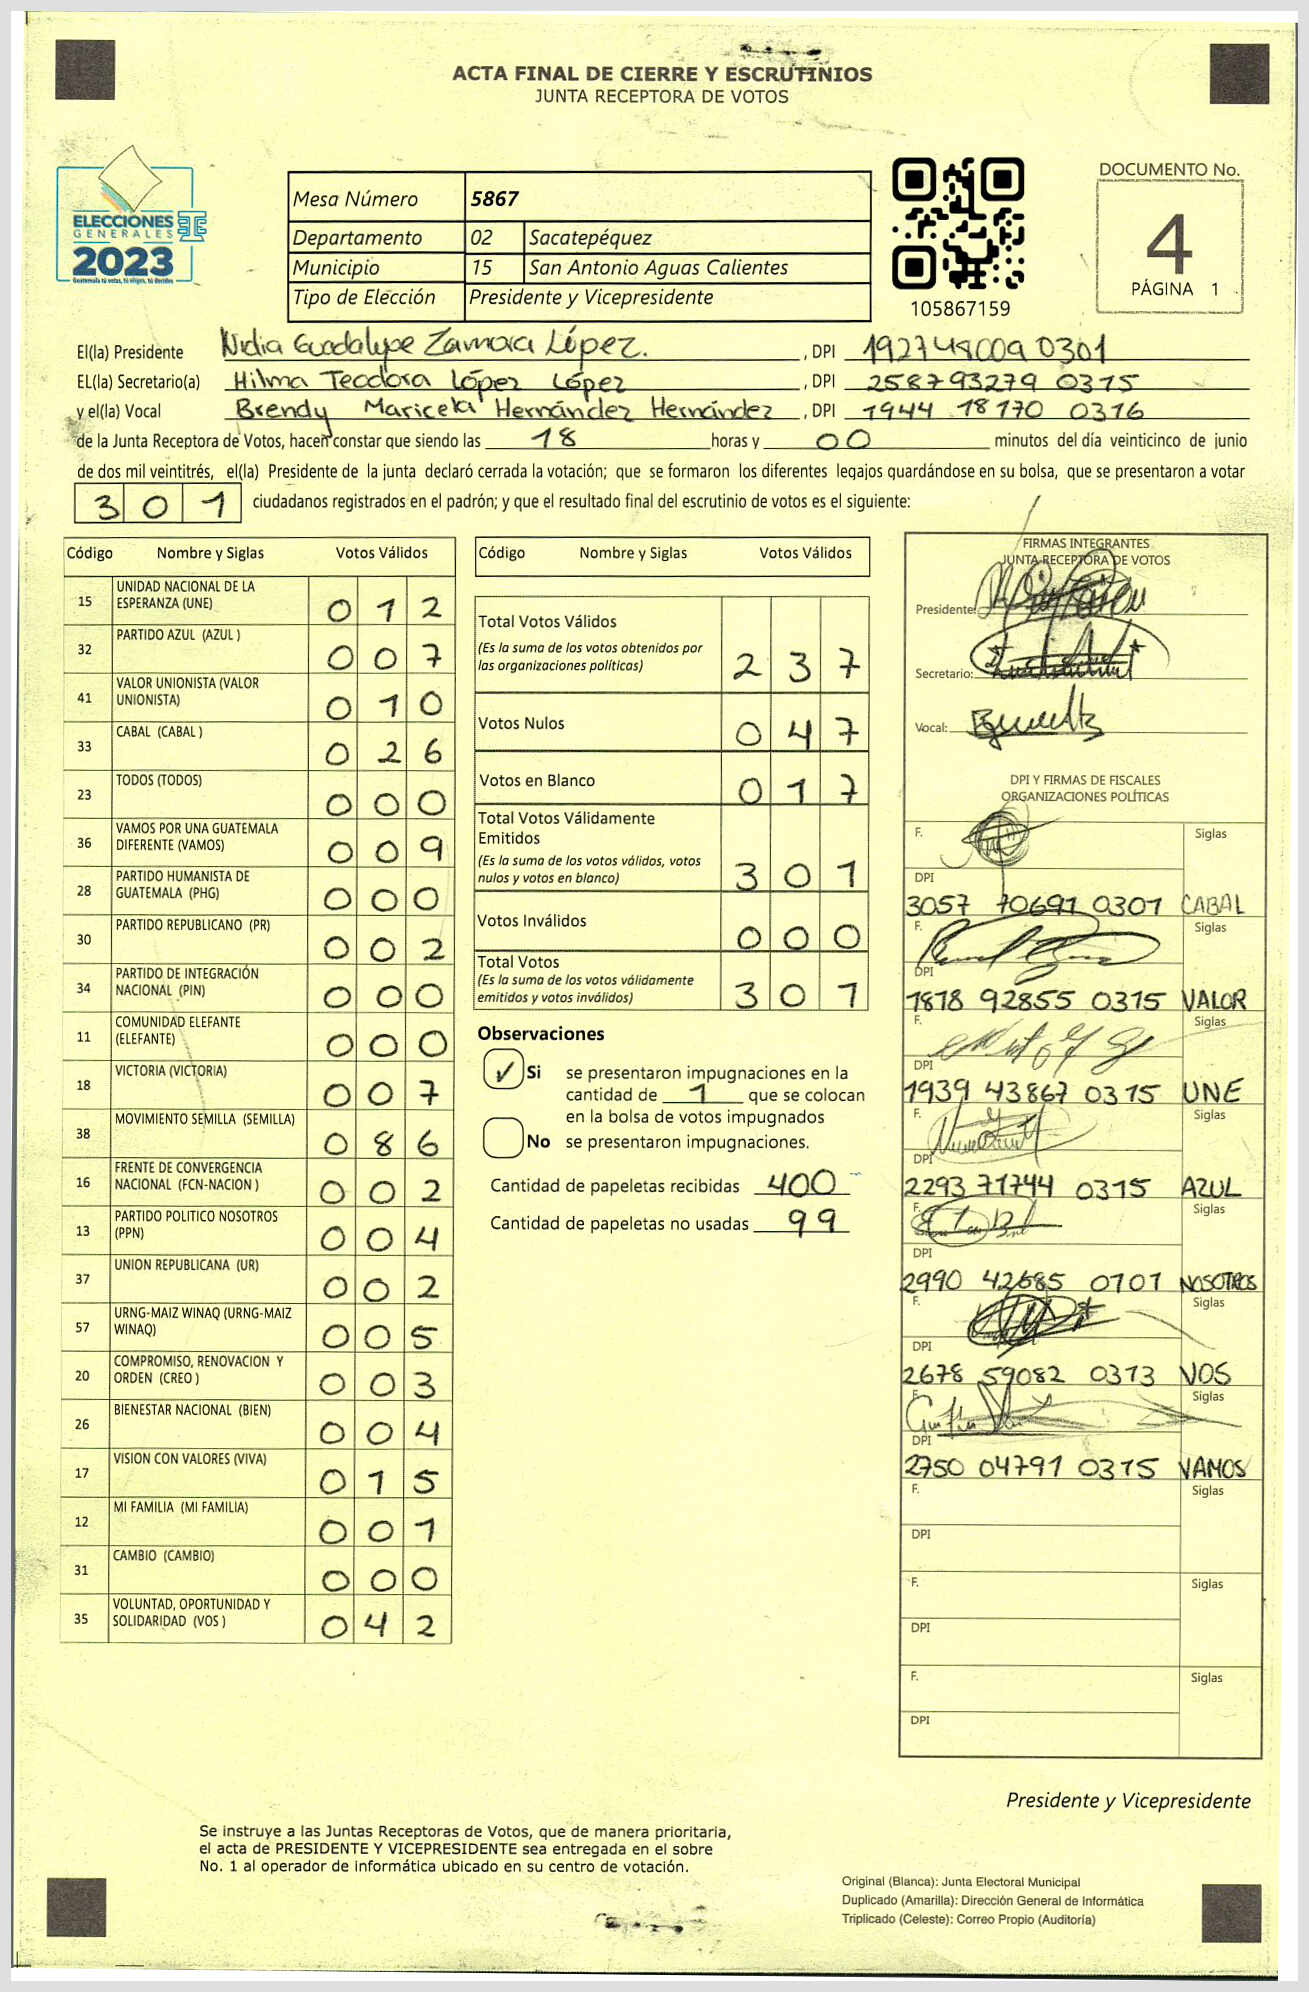 ACTA FINAL DE CIERRE Y ESCRUTINIOS
JUNTA RECEPTORA DE VOTOS
ELECCIONES
GENERALES
2023
Guatemala tú votas, tú eliges, tú decides
Mesa Número 5867
Departamento 02 Sacatepéquez
Municipio 15 San Antonio Aguas Calientes
Tipo de Elección Presidente y Vicepresidente
105867159
DOCUMENTO No.
4
PÁGINA 1
El(la) Presidente Nidia Guadalupe Zamora López. , DPI 192748009 0301
EL(la) Secretario(a) Hilma Teodora López López , DPI 258793279 0315
y el(la) Vocal Brendy Maricela Hernández Hernández , DPI 1944 18170 0316
de la Junta Receptora de Votos, hacen constar que siendo las 18 horas y 00 minutos del día veinticinco de junio
de dos mil veintitrés, el(la) Presidente de la junta declaró cerrada la votación; que se formaron los diferentes legajos quardándose en su bolsa, que se presentaron a votar
301 ciudadanos registrados en el padrón; y que el resultado final del escrutinio de votos es el siguiente:
Código Nombre y Siglas Votos Válidos
15 UNIDAD NACIONAL DE LA
ESPERANZA (UNE) 012
32 PARTIDO AZUL (AZUL ) 007
41 VALOR UNIONISTA (VALOR
UNIONISTA) 010
33 CABAL (CABAL ) 026
23 TODOS (TODOS) 000
36 VAMOS POR UNA GUATEMALA
DIFERENTE (VAMOS) 009
28 PARTIDO HUMANISTA DE
GUATEMALA (PHG) 000
30 PARTIDO REPUBLICANO (PR) 002
34 PARTIDO DE INTEGRACIÓN
NACIONAL (PIN) 000
11 COMUNIDAD ELEFANTE
(ELEFANTE) 000
18 VICTORIA (VICTORIA) 007
38 MOVIMIENTO SEMILLA (SEMILLA) 086
16 FRENTE DE CONVERGENCIA
NACIONAL (FCN-NACION ) 002
13 PARTIDO POLITICO NOSOTROS
(PPN) 004
37 UNION REPUBLICANA (UR) 002
57 URNG-MAIZ WINAQ (URNG-MAIZ
WINAQ) 005
20 COMPROMISO, RENOVACION Y
ORDEN (CREO ) 003
26 BIENESTAR NACIONAL (BIEN) 004
17 VISION CON VALORES (VIVA) 015
12 MI FAMILIA (MI FAMILIA) 001
31 CAMBIO (CAMBIO) 000
35 VOLUNTAD, OPORTUNIDAD Y
SOLIDARIDAD (VOS ) 042
Código Nombre y Siglas Votos Válidos
Total Votos Válidos
(Es la suma de los votos obtenidos por
las organizaciones políticas) 237
Votos Nulos 047
Votos en Blanco 017
Total Votos Válidamente
Emitidos
(Es la suma de los votos válidos, votos
nulos y votos en blanco) 301
Votos Inválidos 000
Total Votos
(Es la suma de los votos válidamente
emitidos y votos inválidos) 301
Observaciones
✓ Si se presentaron impugnaciones en la
cantidad de 1 que se colocan
en la bolsa de votos impugnados
No se presentaron impugnaciones.
Cantidad de papeletas recibidas 400
Cantidad de papeletas no usadas 99
FIRMAS INTEGRANTES
JUNTA RECEPTORA DE VOTOS
Presidente:
Secretario:
Vocal:
DPI Y FIRMAS DE FISCALES
ORGANIZACIONES POLÍTICAS
F. Siglas
DPI
3057 70691 0301 CABAL
F. Siglas
DPI
1818 92855 0315 VALOR
F. Siglas
DPI
1939 43867 0315 UNE
F. Siglas
DPI
2293 71744 0315 AZUL
F. Siglas
DPI
2990 42685 0101 NOSOTROS
F. Siglas
DPI
2678 59082 0313 VOS
F. Siglas
DPI
2750 04791 0315 VAMOS
F. Siglas
DPI
F. Siglas
DPI
F. Siglas
DPI
Presidente y Vicepresidente
Se instruye a las Juntas Receptoras de Votos, que de manera prioritaria,
el acta de PRESIDENTE Y VICEPRESIDENTE sea entregada en el sobre
No. 1 al operador de informática ubicado en su centro de votación.
Original (Blanca): Junta Electoral Municipal
Duplicado (Amarilla): Dirección General de Informática
Triplicado (Celeste): Correo Propio (Auditoría)